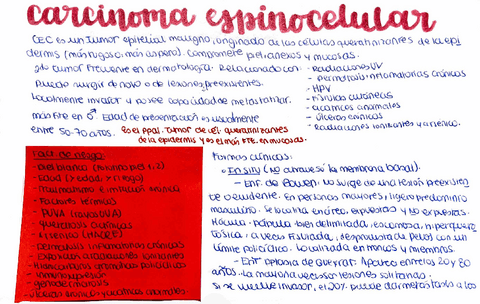 carcinoma espinocelular
CEC es un tumor epitelial maligno, originado de las células queratinizantes de la epi
dermis (más rugoso, más áspero). Compromete piel, anexos y mucosas.
2do tumor frecuente en dermatología. Relacionado con:
- Radiaciones UV
- Dermatosis inflamatorias crónicas
Puede surgir de novo o de lesiones preexistentes.
- HPV
- Fístulas cutáneas
Localmente invasor y posee capacidad de metastatizar.
- cicatrices anormales
más FTE en ♂. Edad de presentación es usualmente
- úlceras crónicas
entre 50-70 años.
- Radiaciones ionizantes y arsénico.
Es el ppal. tumor de cél. queratinizantes
de la epidermis y es el más FTE. en mucosas.
Fact. de riesgo:
- piel blanca (fototipo 1 y 2)
- edad (>edad >riesgo)
- Tabaquismo e irritación crónica
- Factores térmicos
- PUVA
- Queratosis actínicas
- Dermatosis inflamatorias crónicas
- Exposición a radiaciones ionizantes
- Hidrocarburos aromáticos policíclicos
- inmunosupresión
- genodermatosis
- úlceras crónicas y cicatrices anormales
Formas clínicas:
• En SITU (no atraviesa la membrana basal).
- Enf. de Bowen: No surge de una lesión preexisten
te o evidente. En personas mayores, ligero predominio
masculino. Se localiza en áreas expuestas y no expuestas.
Mácula-pápula bien delimitada, escamosa, hiperquera
tósica, a veces fisurada, desprovista de pelos con un
límite policíclico. Localizada en tronco y miembros.
- Enf. eritroplasia de Queyrat: Aparece entre los 20 y 80
años. La mayoría veces son lesiones solitarias.
Si se vuelve invasor, el 20% puede dar metástasis a los